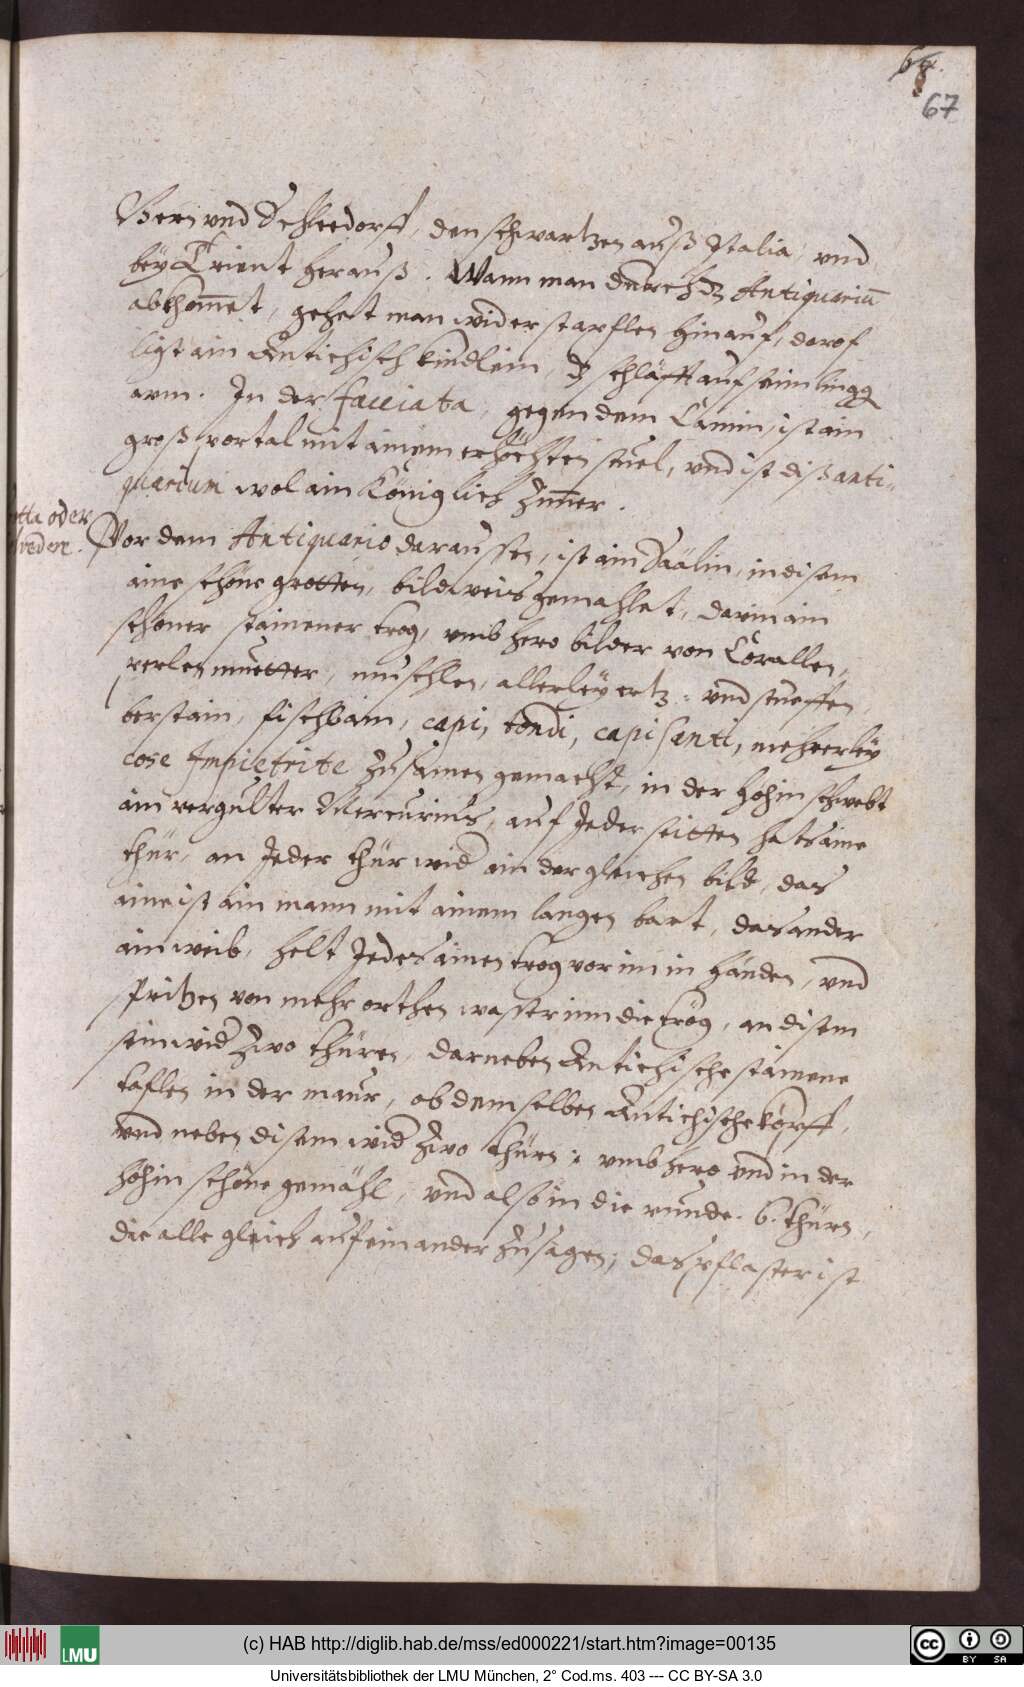 68.
67
Bern und Schleedorff, den schwartzen auß Italia, und
bey Trient herauß. Wann man durch dz Antiquariū
abkhom̄et, gehet man wider stapflen hinauf, darof
ligt ain Antichisch kindlein, dz schläfft auf seim lingg
arm. In der facciata, gegen dem Camin, ist ain
groß portal mit ainem erhöchten stuel, und ist diß anti-
quarium wol ain Königlich Zim̄er.
otta oder
vedere.
Vor dem Antiquario daraussen, ist ain Säälin, in disem
aine schöne grotten, bildweis gemahlet, darin ain
schöner stainener trog, umb hero bilder von Corallen,
perlenmuetter, muschlen, allerley ertz- und stueffen,
berstain, fischbain, capi, tondi, capi santi, meherley
cose Impietrite zusamen gemacht, in der höhin schwebt
ain vergulter Mercurius, auf Jeder seitten hats aine
thür, an Jeder thür wid ain dergleichen bild, das
aine ist ain mann mit ainem langen bart, das ander
ain weib, helt Jedes ainen trog vor im in händen, und
spritzen von mehr orthen wasser inn die trög, an disem
sein wid zwo thüren, darneben Antichische stainene
taflen in der maur, ob demselben Antichische köpff,
und neben disem wid zwo thürn: umb hero und in der
höhin schöne gemähl, und also in die runde. 6. thürn,
die alle gleich auf einander zusagen, das pflaster ist
(c) HAB http://diglib.hab.de/mss/ed000221/start.htm?image=00135
LMU
cc BY SA
Universitätsbibliothek der LMU München, 2° Cod.ms. 403 --- CC BY-SA 3.0